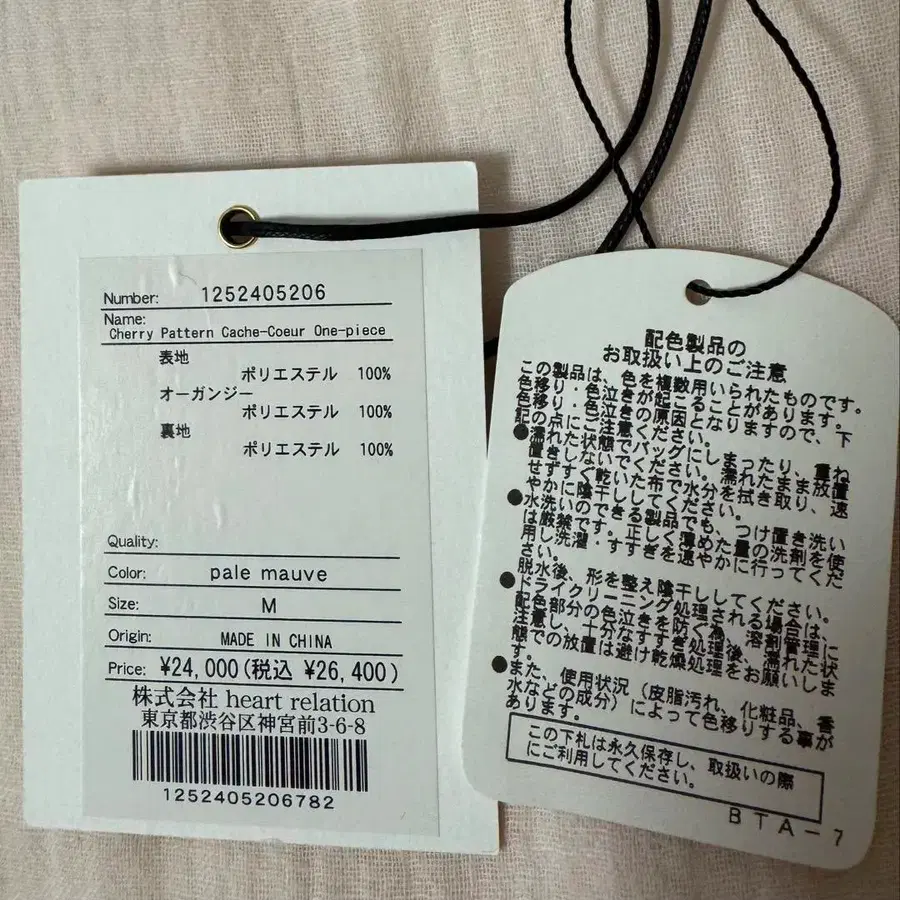 Number: 1252405206
Name:
Cherry Pattern Cache-Coeur One-piece
表地
ポリエステル 100%
オーガンジー
ポリエステル 100%
裏地
ポリエステル 100%
Quality:
Color: pale mauve
Size: M
Origin: MADE IN CHINA
Price: ¥24,000(税込 ¥26,400)
株式会社 heart relation
東京都渋谷区神宮前3-6-8
1252405206782
配色製品の
お取扱い上のご注意
この製品は、色を複数用いられたものです。
色移り・色泣きが起こることがあります。
色移り・色泣きの原因となりますので、下
記の点にご注意ください。
●濡れた状態でバッグにしまったり、重ね
置きしないでください。濡れたまま放置
せずすぐ乾いた布で水分を拭き取り、速
やかに陰干ししてください。
●水洗いのできる製品でも、つけ置き洗い
は厳禁です。正しく薄めた量の洗剤を使
用し洗濯・すすぎを速やかに行ってくだ
さい。
脱水後、形を整え陰干ししてください。
●ドライクリーニング処理される場合は、
配色部分の色泣きを防ぐ為、溶剤管理に
注意し、十分なすすぎ処理後、濡れた状
態での放置は避け乾燥処理をお願いしま
す。
●また、使用状況（皮脂汚れ、化粧品、香
水などの成分）によって色移りする事が
あります。
この下札は永久保存し、取扱いの際
にご利用してください。
BTA-7